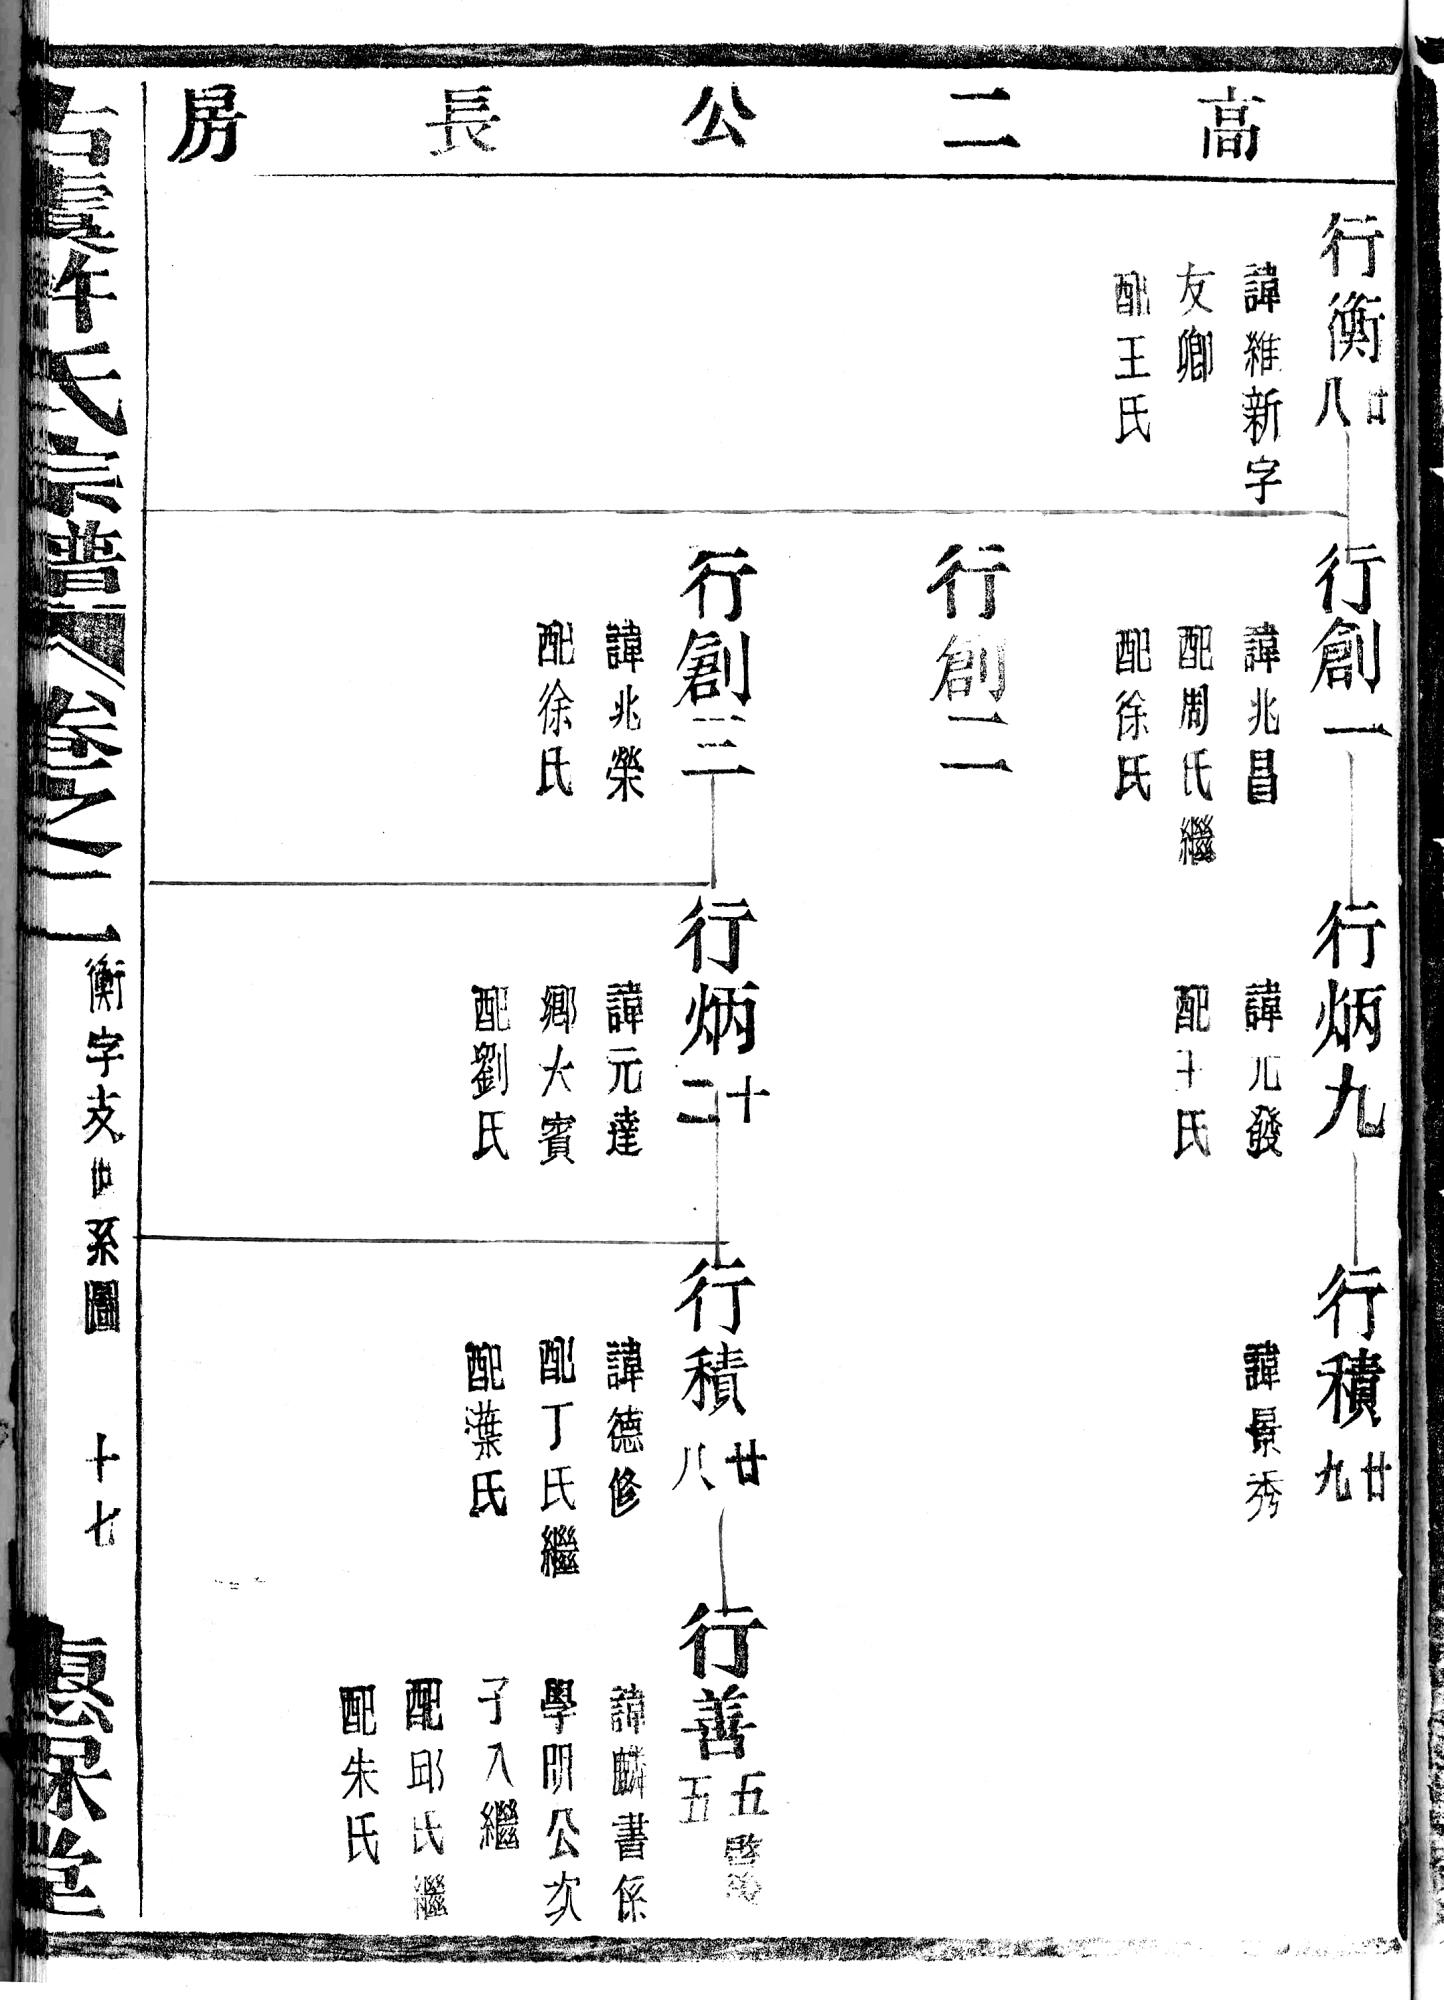 高二公長房
行衡廿八
諱維新字
友卿
配王氏
行創一
諱兆昌
配周氏繼
配徐氏
行創二
行創三
諱兆榮
配徐氏
行炳九
諱元發
配王氏
行炳十二
諱元達
鄉大賓
配劉氏
行積廿九
諱景秀
行積廿八
諱德修
配丁氏繼
配葉氏
行善五五
諱麟書係
學閒公次
子入繼
配邱氏繼
配朱氏
古虞許氏宗譜
卷之二
衡字支世系圖
十七
堂